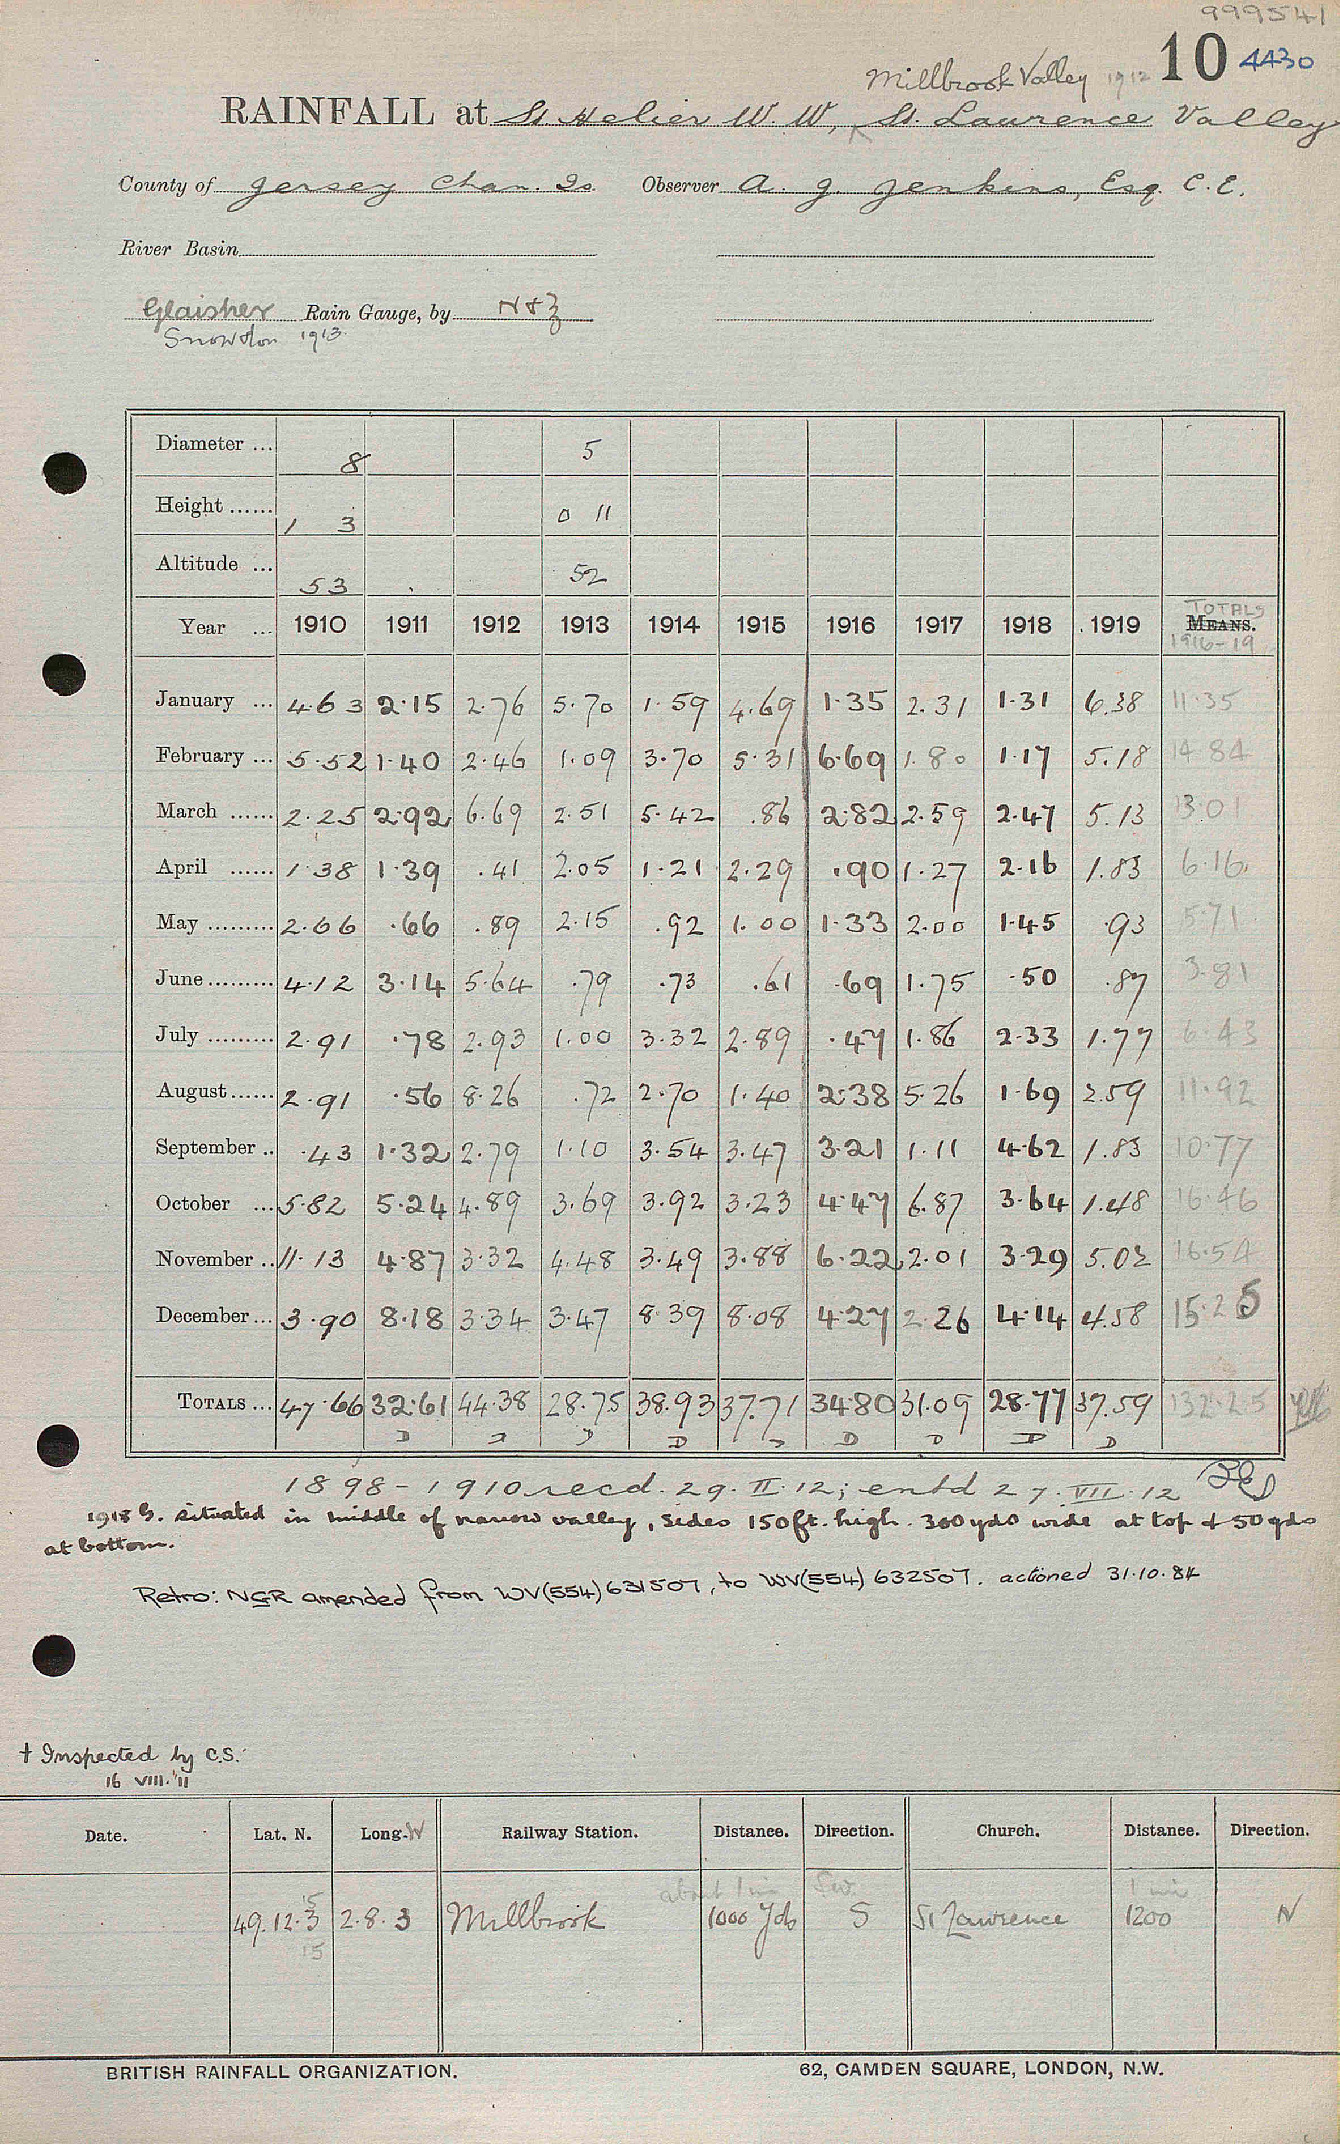 999541
10 4430
Millbrook Valley 1912
RAINFALL at St Helier W. W., St. Lawrence Valley
County of Jersey Chan. Is. Observer A. J. Jenkins, Esq. C.E.
River Basin
Glaisher Rain Gauge, by N & Z
Snowdon 1913
Diameter ... 8 5
Height ...... 1 3 0 11
Altitude ... 53 52
TOTALS
Year ... 1910 1911 1912 1913 1914 1915 1916 1917 1918 1919 MEANS.
1916-19
January ... 4.63 2.15 2.76 5.70 1.59 4.69 1.35 2.31 1.31 6.38 11.35
February ... 5.52 1.40 2.46 1.09 3.70 5.31 6.69 1.80 1.17 5.18 14.84
March ...... 2.25 2.92 6.69 2.51 5.42 .86 2.82 2.59 2.47 5.13 13.01
April ...... 1.38 1.39 .41 2.05 1.21 2.29 .90 1.27 2.16 1.83 6.16
May ......... 2.66 .66 .89 2.15 .92 1.00 1.33 2.00 1.45 .93 5.71
June ......... 4.12 3.14 5.64 .79 .73 .61 .69 1.75 .50 .87 3.81
July ......... 2.91 .78 2.93 1.00 3.32 2.89 .47 1.86 2.33 1.77 6.43
August ...... 2.91 .56 8.26 .72 2.70 1.40 2.38 5.26 1.69 2.59 11.92
September .. .43 1.32 2.79 1.10 3.54 3.47 3.21 1.11 4.62 1.83 10.77
October ... 5.82 5.24 4.89 3.69 3.92 3.23 4.47 6.87 3.64 1.48 16.46
November .. 11.13 4.87 3.32 4.48 3.49 3.88 6.22 2.01 3.29 5.02 16.54
December ... 3.90 8.18 3.34 3.47 8.39 8.08 4.27 2.26 4.14 4.58 15.25
TOTALS ... 47.66 32.61 44.38 28.75 38.93 37.71 34.80 31.09 28.77 37.59 132.25
D D D D D D D D D
1898-1910 recd. 29.II.12; entd 27.VII.12
1918 G. situated in middle of narrow valley, sides 150ft. high. 300 yds wide at top & 50 yds
at bottom.
Retro: NGR amended from WV(554)631507, to WV(554)632507. actioned 31.10.84
† Inspected by C.S.
16 VIII. '11
Date. Lat. N. Long. W Railway Station. Distance. Direction. Church. Distance. Direction.
15 about 1 mi SW. 1 mi
49.12.3 2.8.3 Millbrook 1000 yds S St Lawrence 1200 N
15
BRITISH RAINFALL ORGANIZATION. 62, CAMDEN SQUARE, LONDON, N.W.